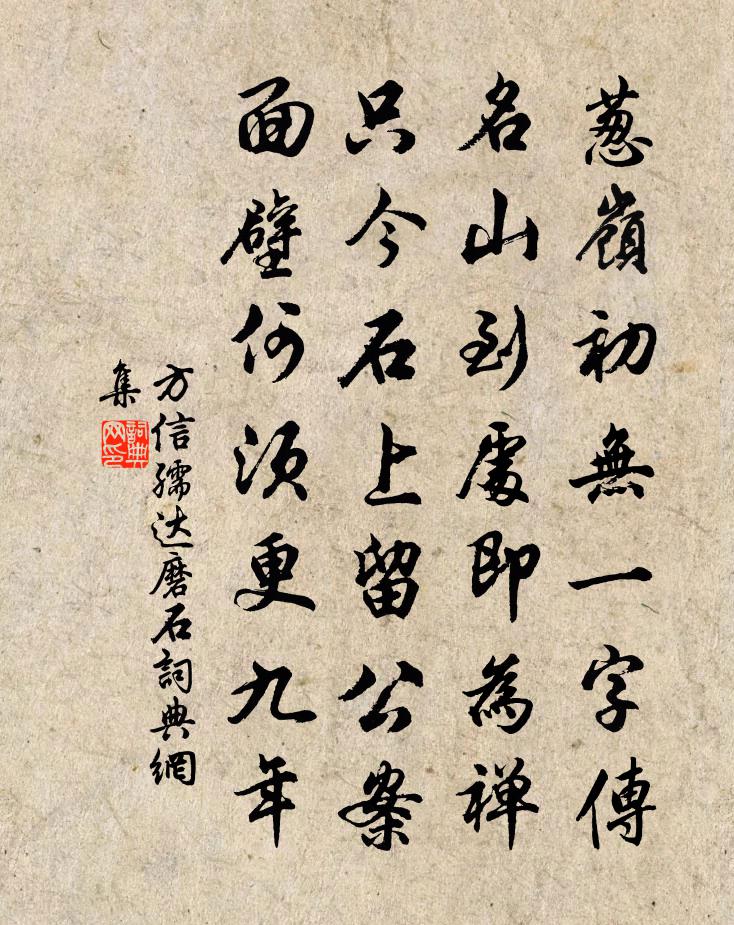 葱嶺初無一字傳
名山到處即為禅
只今石上留公案
面壁何須更九年
方信孺达磨石詞典網
集
詞典
网印